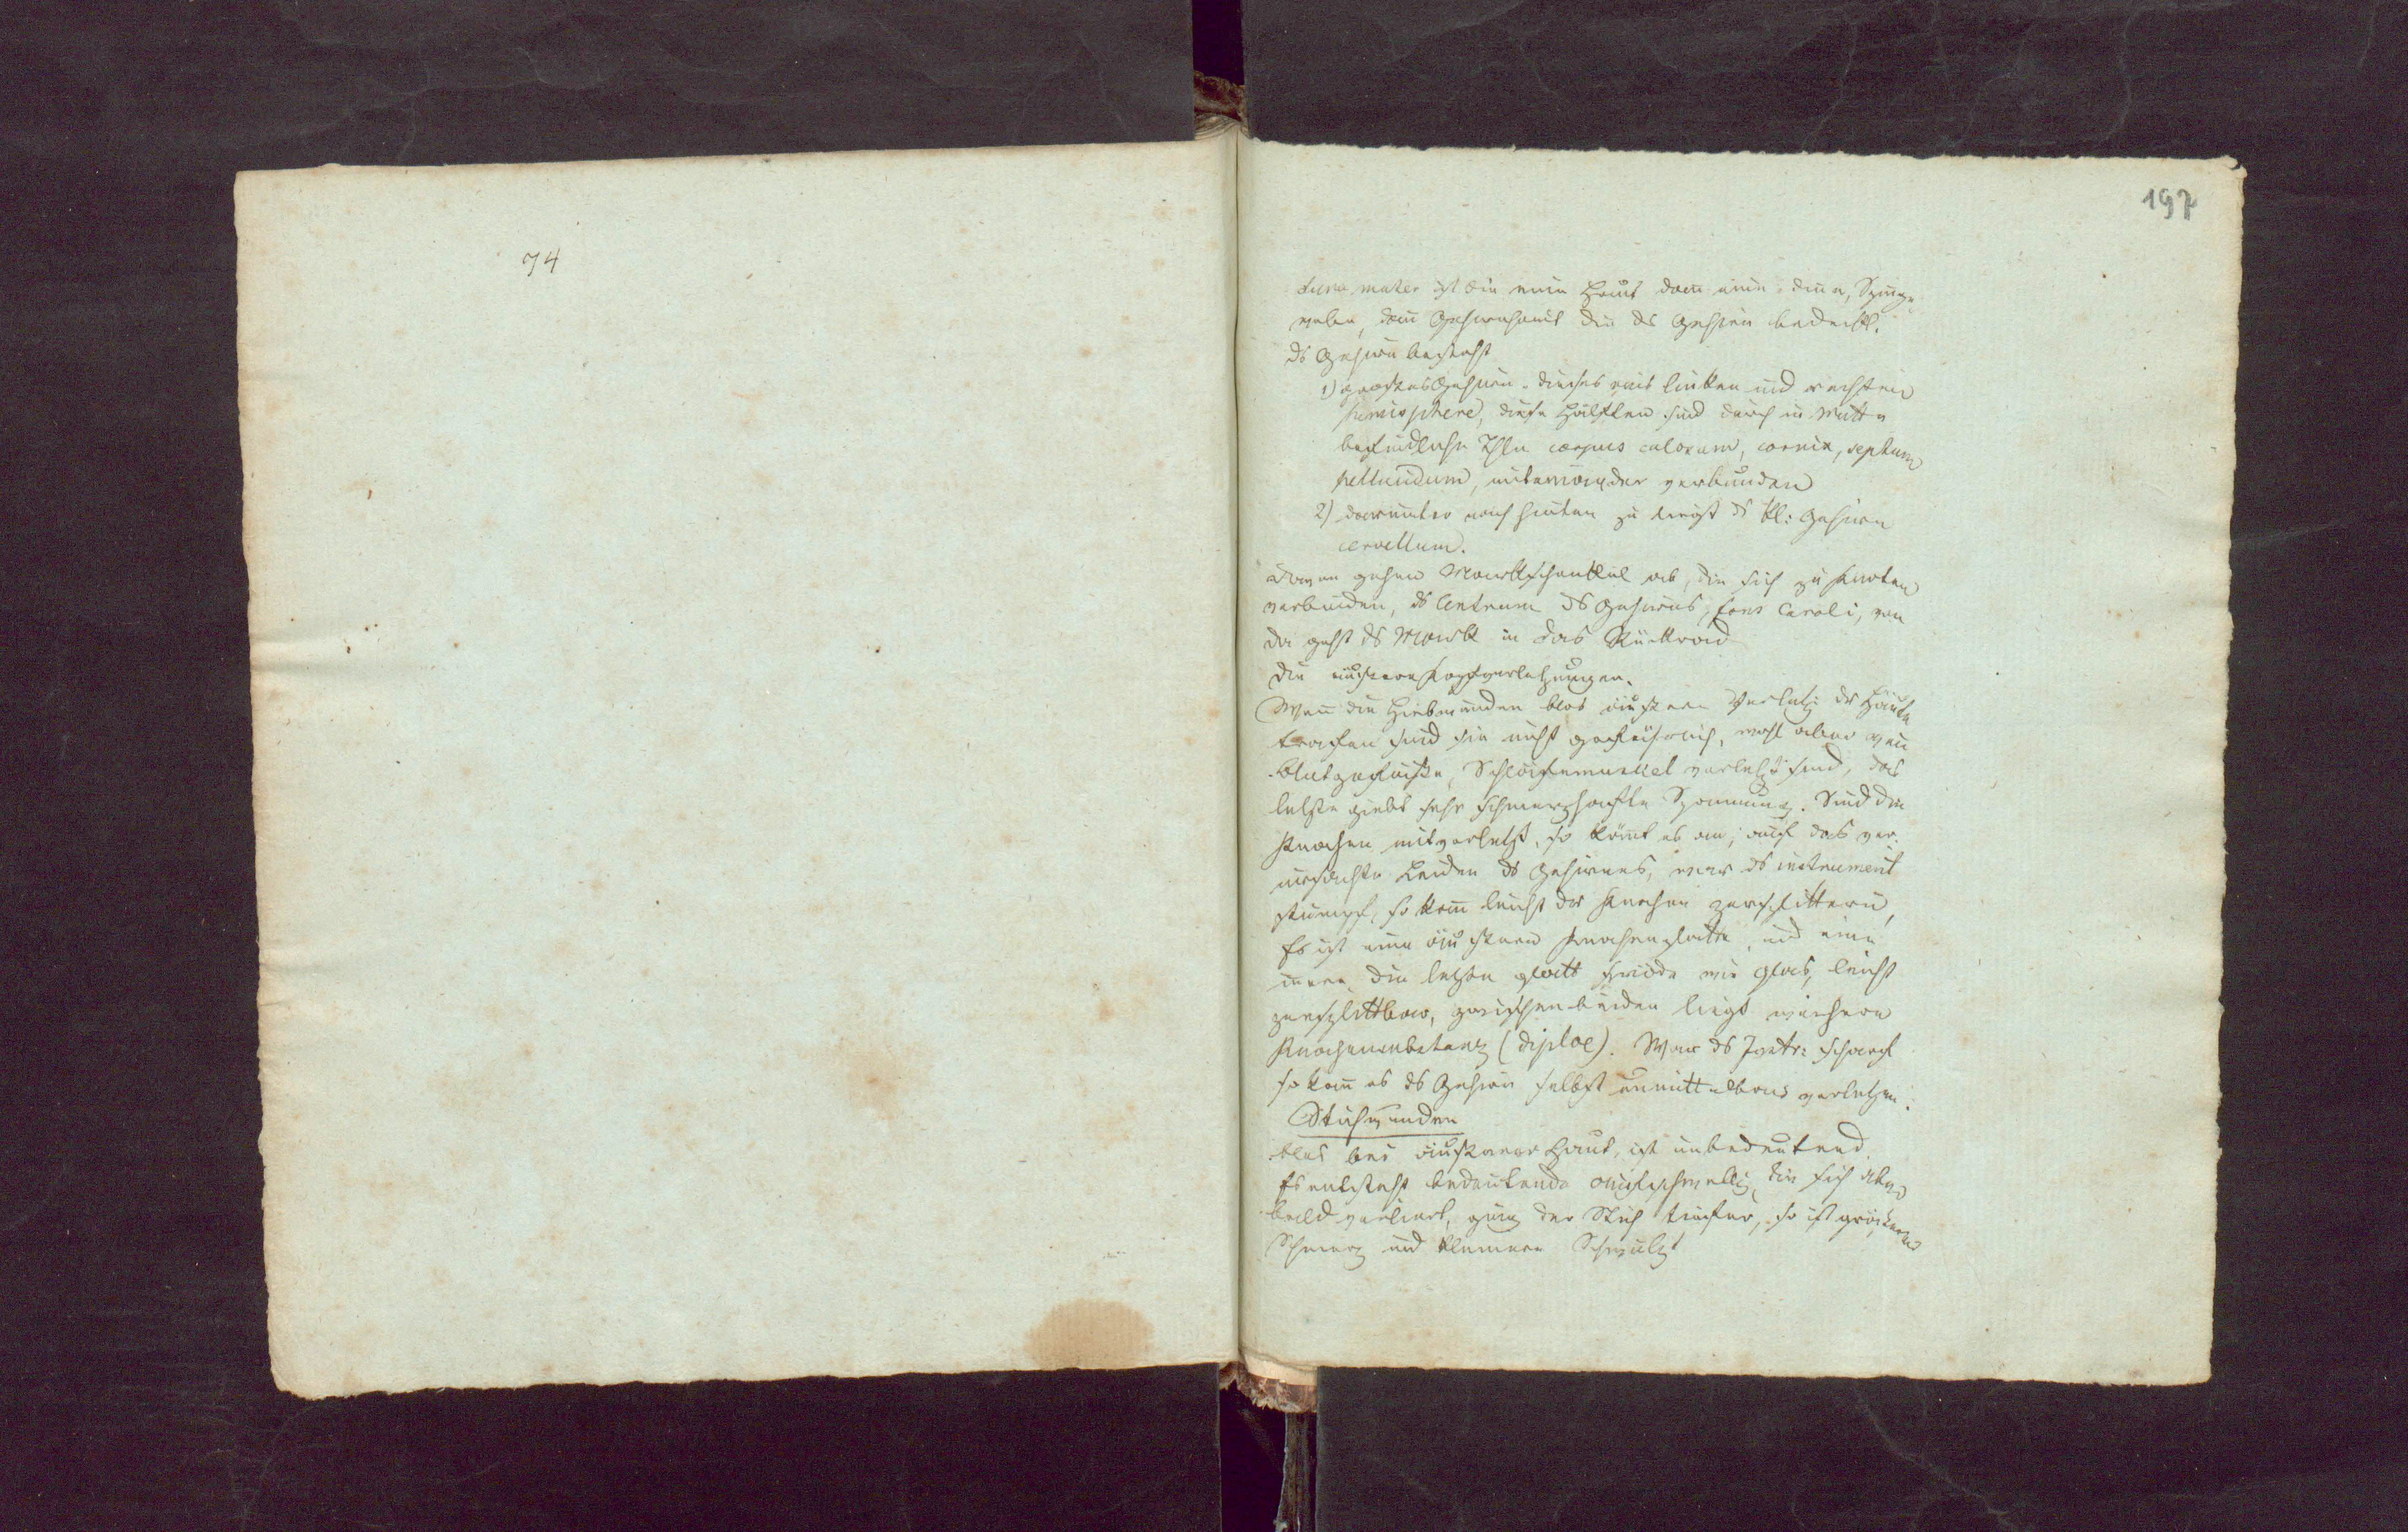 74
197
dura mater ist die eine Haut dann eine dine, Spinge¬
webe, dann Gehirnhaut die ds Gehirn bedeckt.
ds Gehirn besteht
1) großes Gehirn. dieses aus linken und rechten
hemisphere, diese Hälften sind durch in Mitte
befindliche Thle corpus calosum, cornix, septum
pellucidum, miteinander verbunden
2) darunter nach hinten zu liegt ds kl: Gehirn
cervellum.
davon gehen Markschenkel ab, die sich zu Knoten
verbinden, ds Centrum ds Gehirns, pons Caroli, von
da geht ds Mark in das Rückrad
Die äußeren Kopfverletzungen.
Wenn die Hiebwunden blos äußere Verletzg der Häute
trafen sind sie nicht gefährlich, wohl aber wen
Blutgefäße, Schläfemuskel verletzt sind, das
letzte giebt sehr schmerzhafte Spannung. Sind die
Knochen mitverletzt, so kömt es an; auf das ver¬
ursachte Leiden ds Gehirnes, war ds instrument
stumpf, so kann leicht der Knochen zersplittern,
Es ist eine äußere Knochenplatte, und eine
innere, die letzte glatt spröde wie Glas, leicht
zersplittbar, zwischen beiden liegt weichere
Knochensubstanz (diploe). War ds Instr: scharf
so kann es ds Gehirn selbst unmittelbar verletzen.
Stichwunden
blos bei äußerer Haut, ist unbedeutend.
Es entsteht bedeutende aufschwellg, die sich aber
bald verliert, ging der Stich tiefer, so ist größerer
Schmerz und kleinere Schwulst